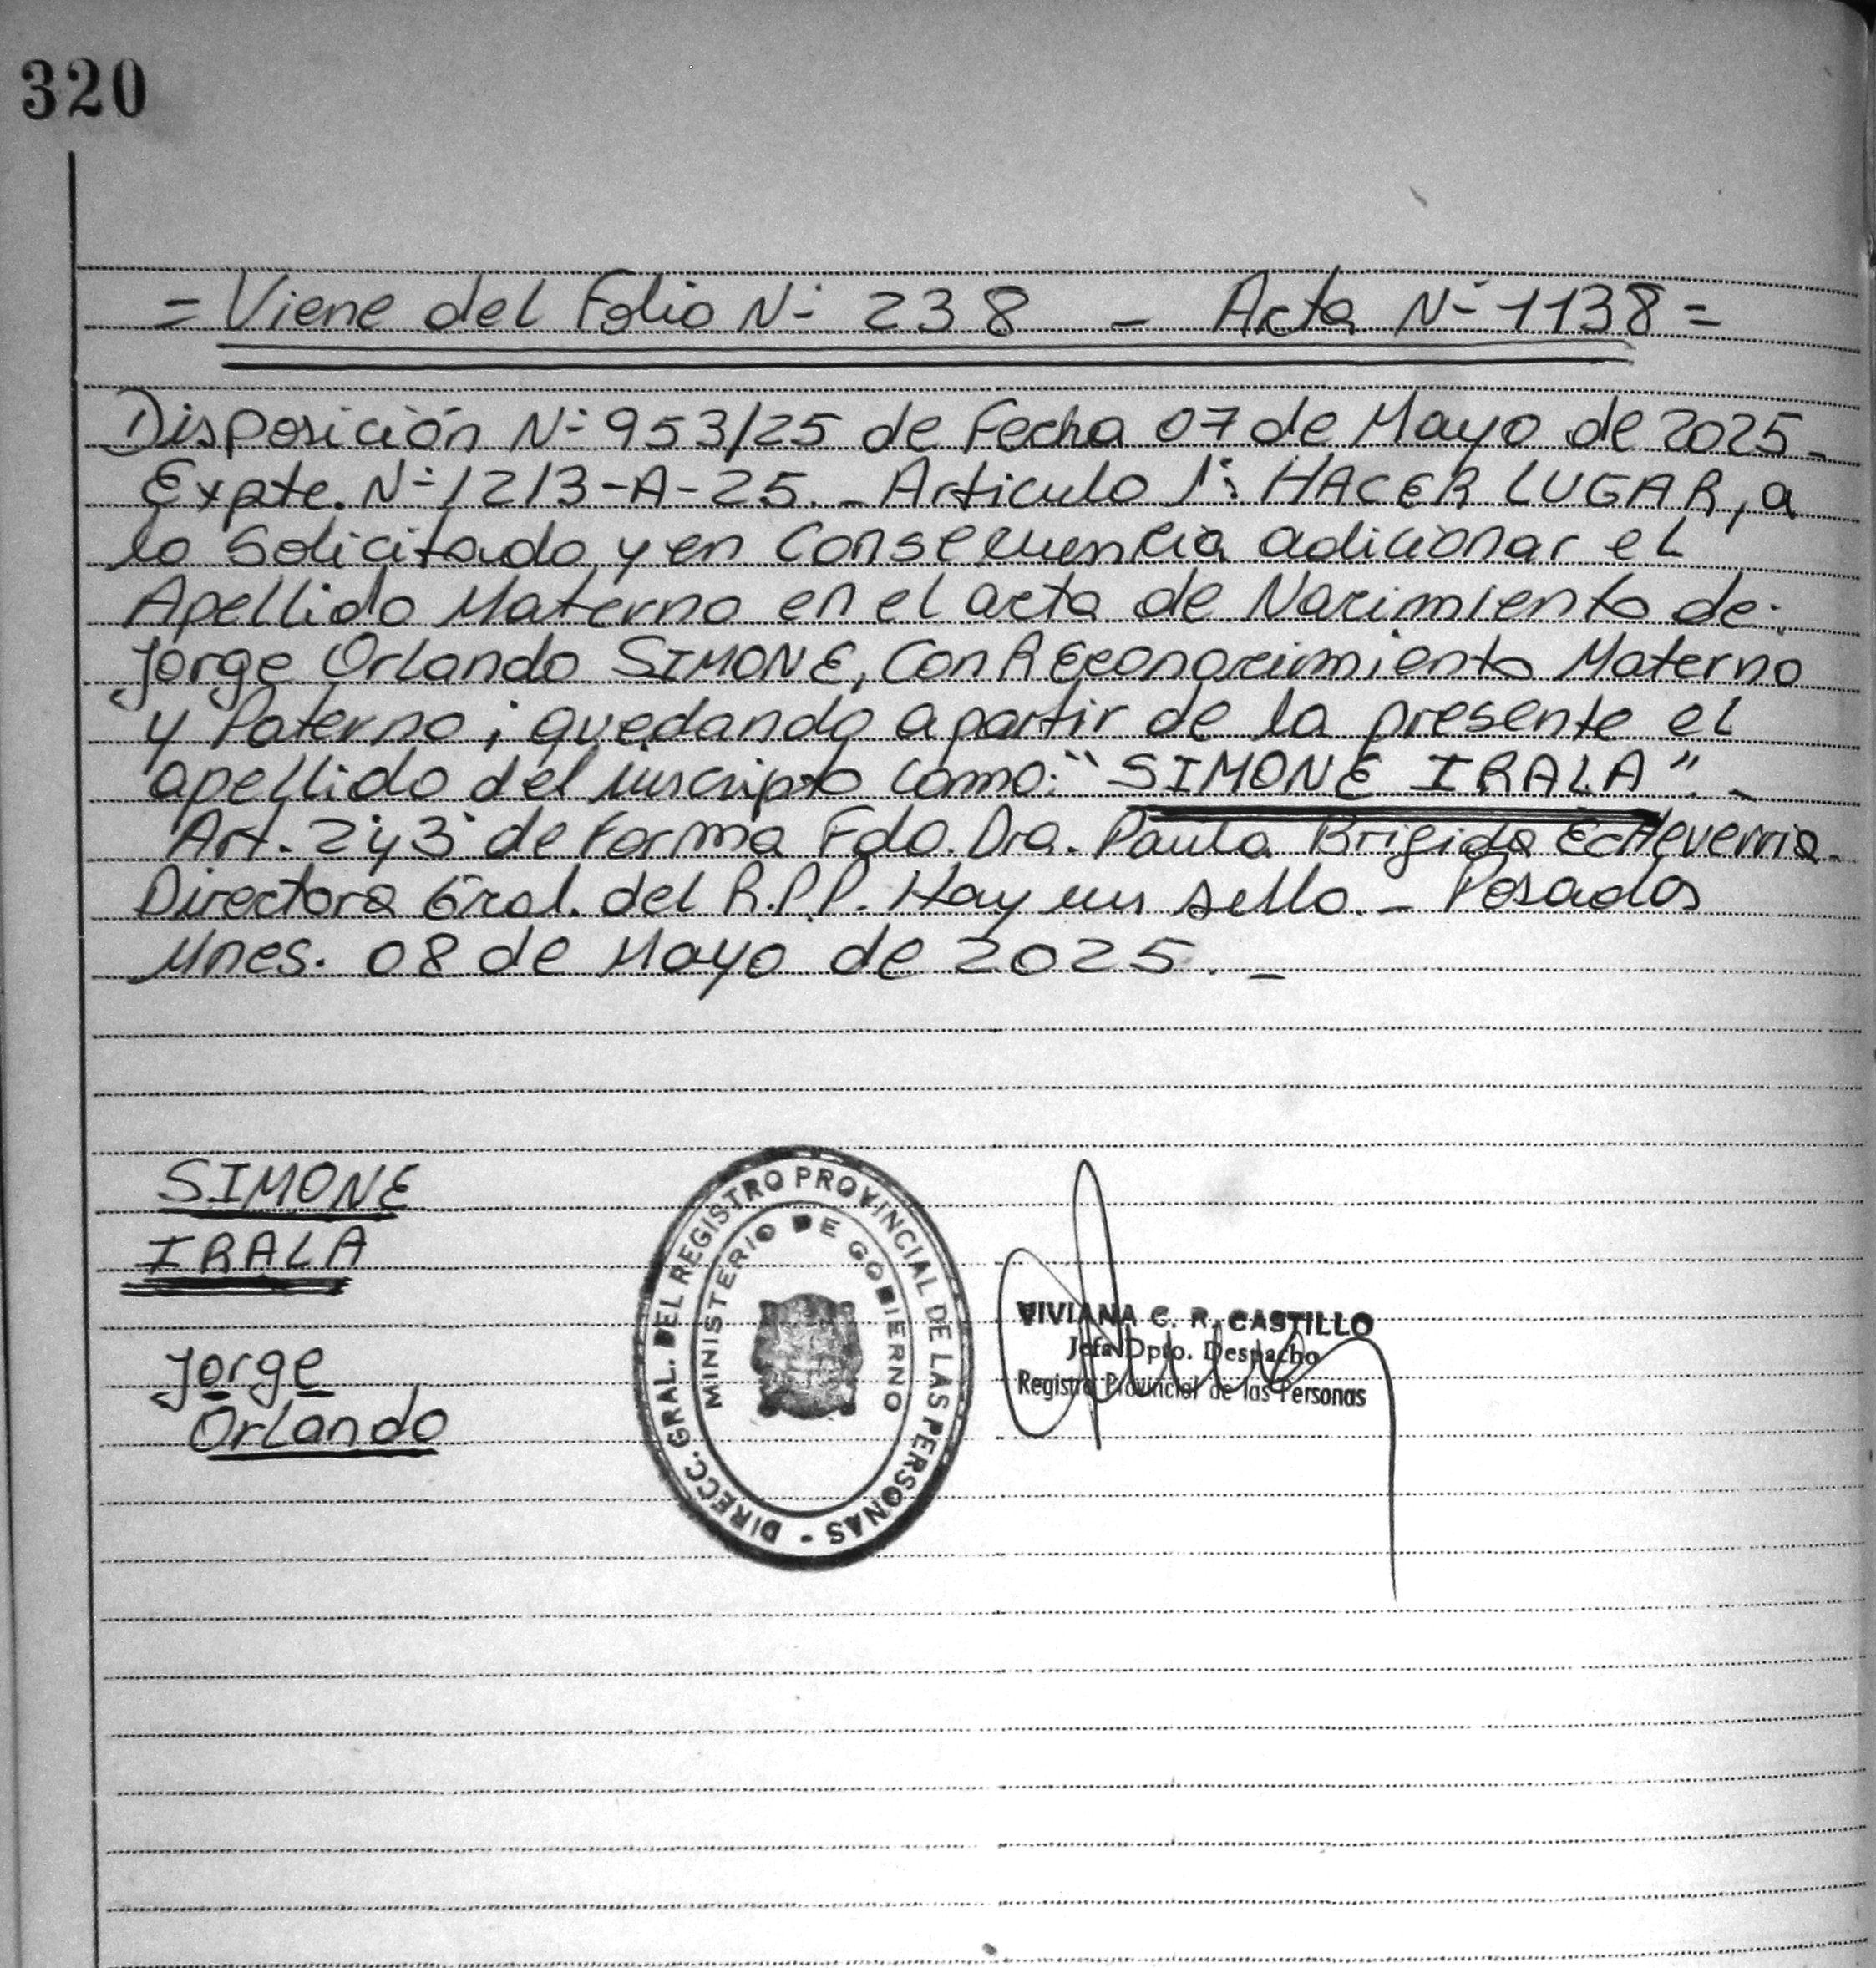 320
= Viene del Folio Nº 238 - Acta Nº 1138 =
Disposición Nº 953/25 de Fecha 07 de Mayo de 2025.
Expte. Nº 1213-A-25. - Articulo 1º: HACER LUGAR, a
lo Solicitado y en Consecuencia adicionar el
Apellido Materno en el acta de Nacimiento de:
Jorge Orlando SIMONE, Con REconocimiento Materno
y Paterno; quedando a partir de la presente el
apellido del inscripto como: "SIMONE IRALA". -
Art. 2º y 3º de Forma Fdo. Dra. Paula Brigida EcHeverria.
Directora Gral. del R.P.P. Hay un sello. - Posadas
Mnes. 08 de Mayo de 2025. -
SIMONE
IRALA
Jorge
Orlando
DIRECC. GRAL. DEL REGISTRO PROVINCIAL DE LAS PERSONAS -
MINISTERIO DE GOBIERNO
VIVIANA C. R. CASTILLO
Jefa Dpto. Despacho
Registro Provincial de las Personas